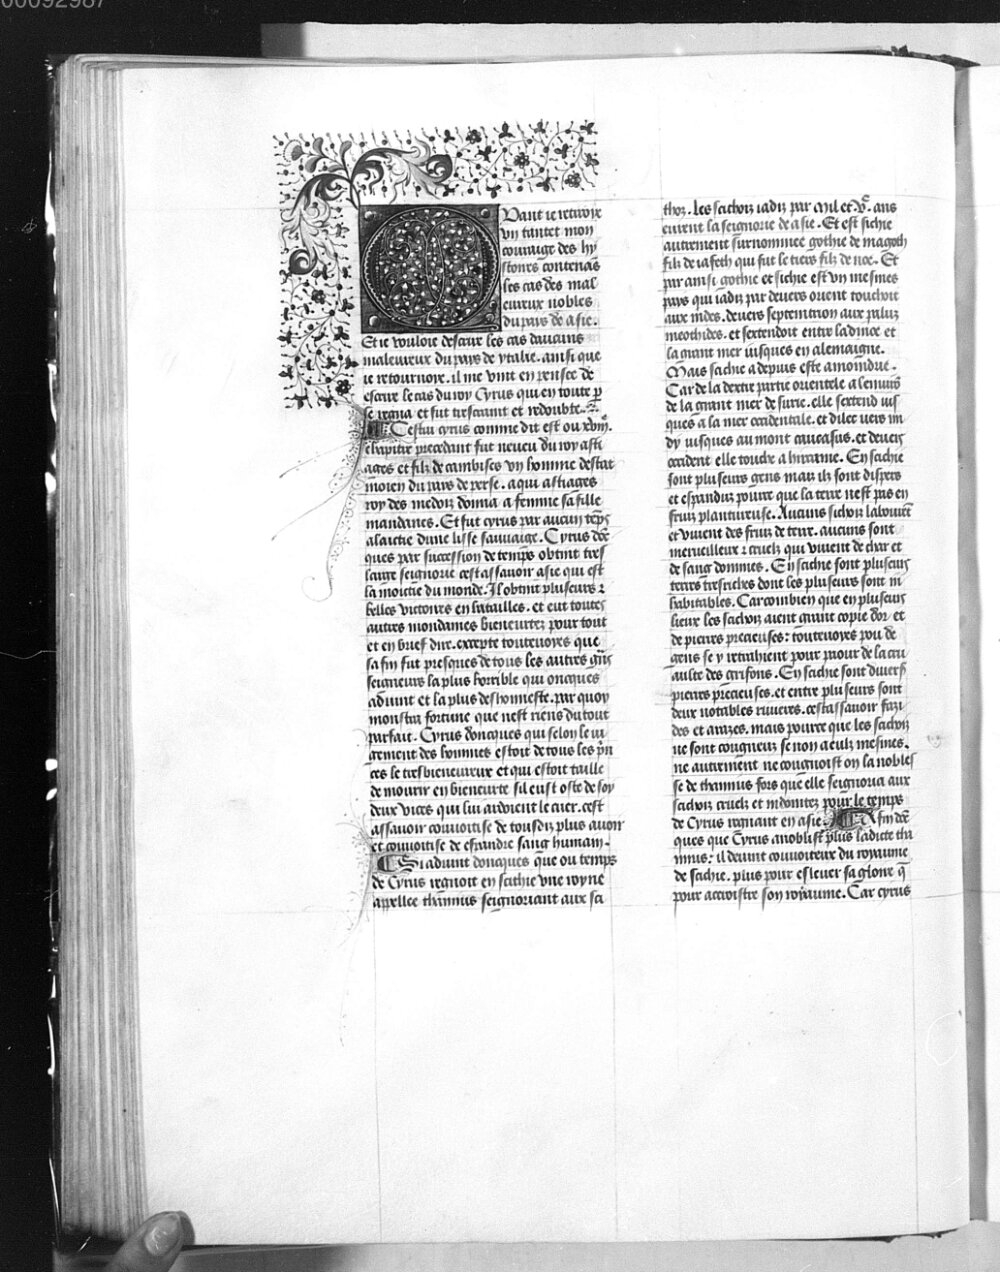 00092987
Quant ie retiroye
vng tantet mon
couraige des hy
stoires contenãs
les cas des mal
eureux nobles
du pays de asie.
Et ie vouloie descrire les cas daucuns
maleureux du pays de ytalie. ainsi que
ie retournoye. il me vint en pensee de
escrire le cas du roy Cyrus qui en toute p̱
se regna et fut trescraint et redoubte.
Cestui cyrus comme dit est ou xviij.
chapitre precedant fut neueu du roy asti
ages et filz de cambises vng homme destat
moien du pays de perse. a qui astiages
roy des medois donna a femme sa fille
mandanes. Et fut cyrus par aucun tẽps
alaictie dune lisse sauuaige. Cyrus dõc
ques par succession de temps obtint tres
large seignorie cestassauoir asie qui est
la moictie du monde. Il obtint pluseurs ⁊
belles victoires en batailles. et eut toutes
autres mondaines bieneurtez pour tout
et en brief dire. excepte toutenoyes que
sa fin fut presques de tous les autres grãs
seigneurs la plus horrible qui oncques
aduint et la plus deshonneste. par quoy
monstra fortune que nest riens du tout
parfait. Cyrus doncques qui selon le iu
gement des hommes estoit de tous les prin
ces le tresbieneureux et qui estoit taille
de mourir en bieneurte sil eust oste de soy
deux vices qui lui ardoient le cuer. cest
assauoir conuoitise de tousdiz plus auoir
et conuoitise de espandre sang humain.
Si aduint doncques que ou temps
de Cyrus regnoit en scithie vne royne
appellee thamiris seignoriant aux sci
thois. Les scithois iadiz par mil et vͨ. ans
eurent la seignorie de asie. Et est sichie
autrement surnommee gothie de magoth
filz de iafeth qui fut le tiers filz de noe. Et
par ainsi gothie et sichie est vn mesmes
pays qui iadiz par deuers orient touchoit
aux indes. deuers septemtrion aux paluz
meothides. et sextendoit entre ladinoe et
la grant mer iusques en alemaigne.
Mais sichie a depuis este amoindrie.
Car de la dextre partie orientele a lenuirõ
de la grant mer de surie. elle sextend ius
ques a la mer occidentale. et dilec vers mi
dy iusques au mont caucasus. et deuers
occident elle touche a hircanie. En sichie
sont pluseurs gens mais ilz sont dispers
et espanduz pource que la terre nest pas en
fruiz plantureuse. Aucuns sichois labourẽt
et viuent des fruiz de terre. aucuns sont
merueilleux ⁊ cruelz qui viuent de char et
de sang dommes. En sichie sont pluseurs
terres tresriches dont les pluseurs sont in
habitables. Car combien que en pluseurs
lieux les sichois aient grant copie dor et
de pierres precieuses: toutenoyes pou de
gens se y retrahient pour paour de la cru
aulte des grifons. En sichie sont diuerses
pierres precieuses. et entre pluseurs sont
deux notables riuieres. cestassauoir fazi
des et araxes. mais pource que les sichois
ne sont congneuz se non a eulz mesmes.
ne autrement ne congnoist on la nobles
se de thamiris fors que elle seignoria aux
sichois cruelz et indomitez pour le temps
de Cyrus regnant en asie. Afin dõc
ques que Cyrus anoblist plus ladicte tha
miris: il deuint conuoiteux du royaume
de sichie. plus pour eslever sa gloire q̃
pour accroistre son royaume. Car cyrus